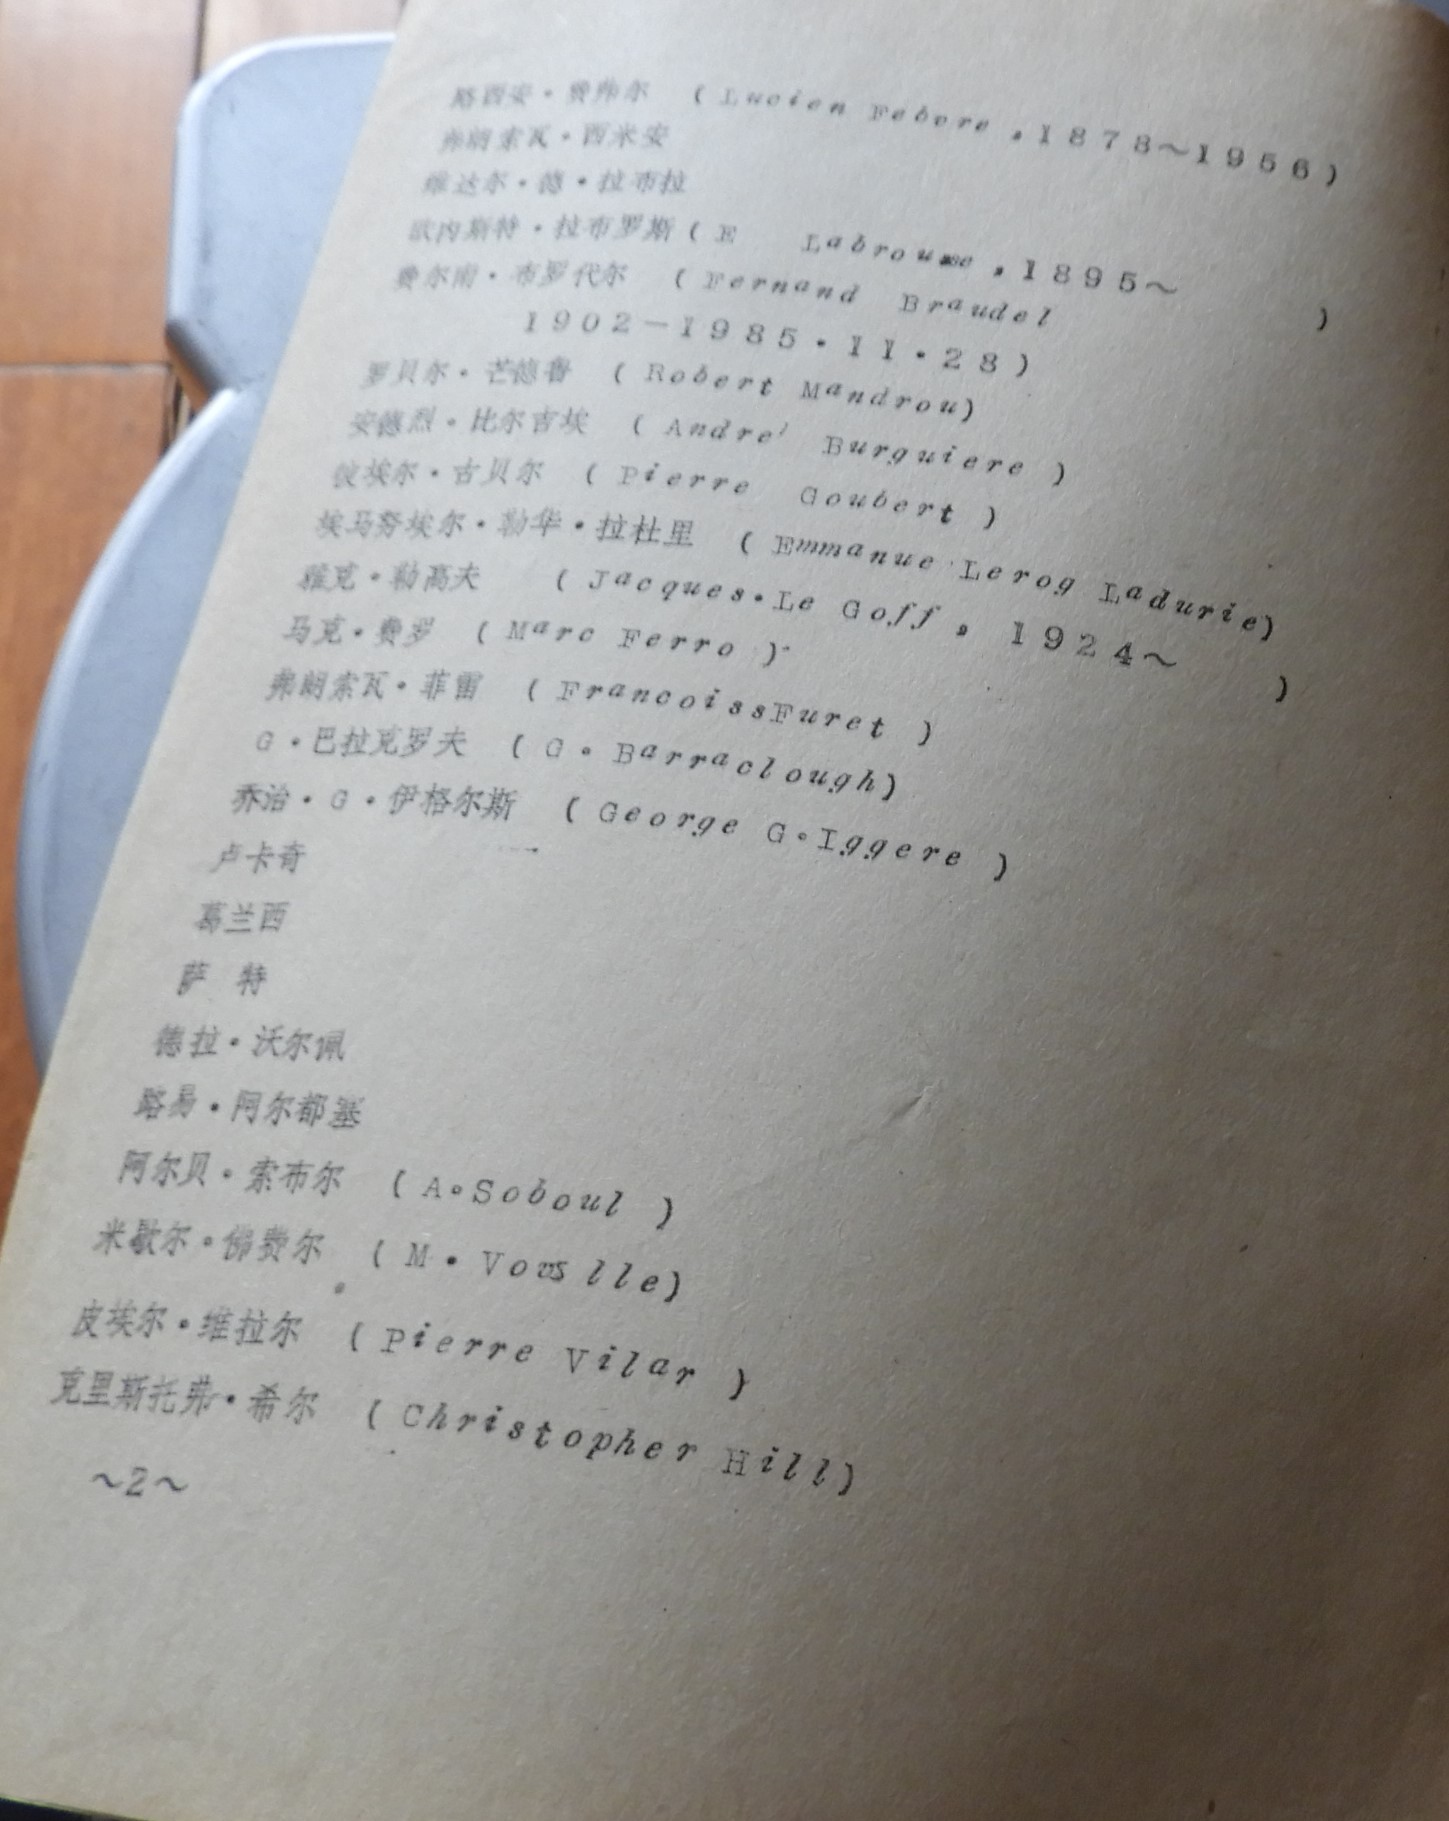 路西安·费弗尔 (Lucien Febvre,1878~1956)
弗朗索瓦·西米安
维达尔·德·拉布拉
欧内斯特·拉布罗斯(E Labrousse,1895~ )
费尔南·布罗代尔 (Fernand Braudel
1902-1985·11·28)
罗贝尔·芒德鲁 (Robert Mandrou)
安德烈·比尔吉埃 (Andre' Burguiere )
彼埃尔·古贝尔 (Pierre Goubert )
埃马努埃尔·勒华·拉杜里 (Emmanue Lerog Ladurie)
雅克·勒高夫 (Jacques·Le Goff, 1924~ )
马克·费罗 (Marc Ferro )
弗朗索瓦·菲雷 (FrancoissFuret )
G·巴拉克罗夫 (G·Barraclough)
乔治·G·伊格尔斯 (George G·Iggere )
卢卡奇
葛兰西
萨 特
德拉·沃尔佩
路易·阿尔都塞
阿尔贝·索布尔 (A·Soboul )
米歇尔·佛费尔 (M·Vovslle)
皮埃尔·维拉尔 (Pierre Vilar )
克里斯托弗·希尔 (Christopher Hill)
~2~